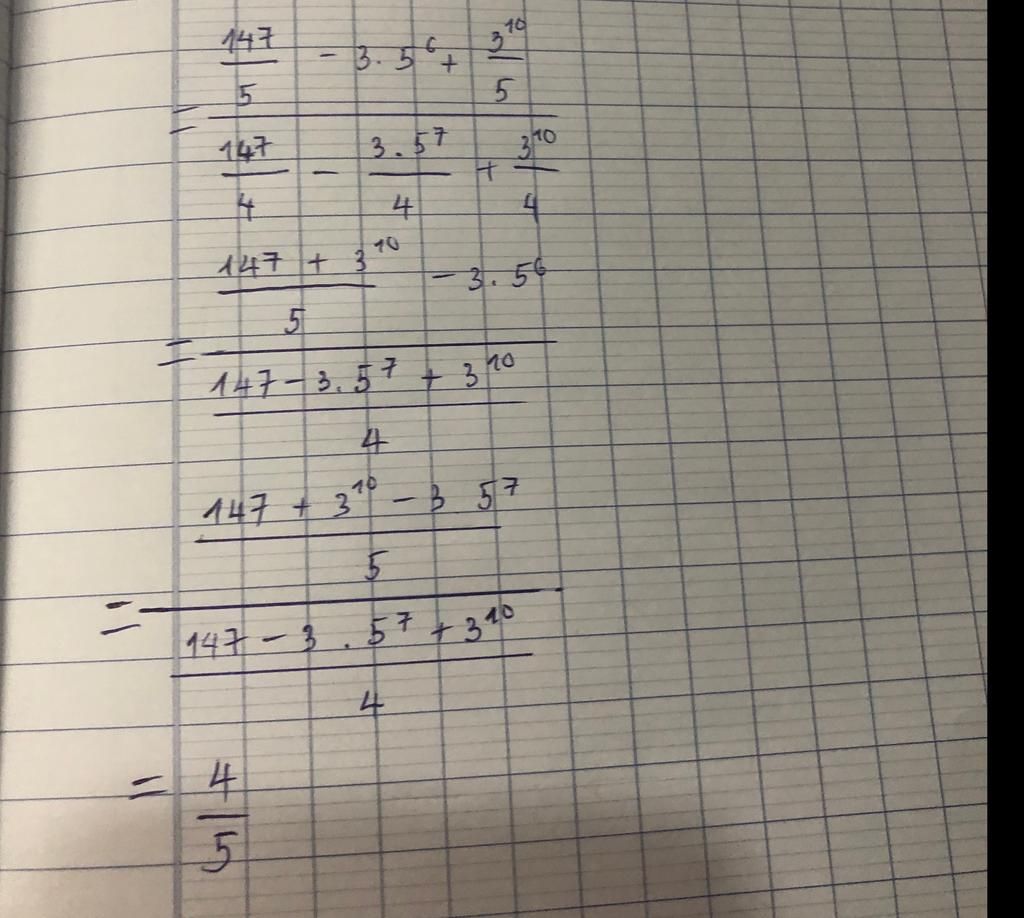 147/5 - 3.5^6 + 3^10/5
=
147/4 - 3.5^7/4 + 3^10/4
(147 + 3^10)/5 - 3.5^6
=
(147 - 3.5^7 + 3^10)/4
(147 + 3^10 - 3 5^7)/5
=
(147 - 3.5^7 + 3^10)/4
= 4/5